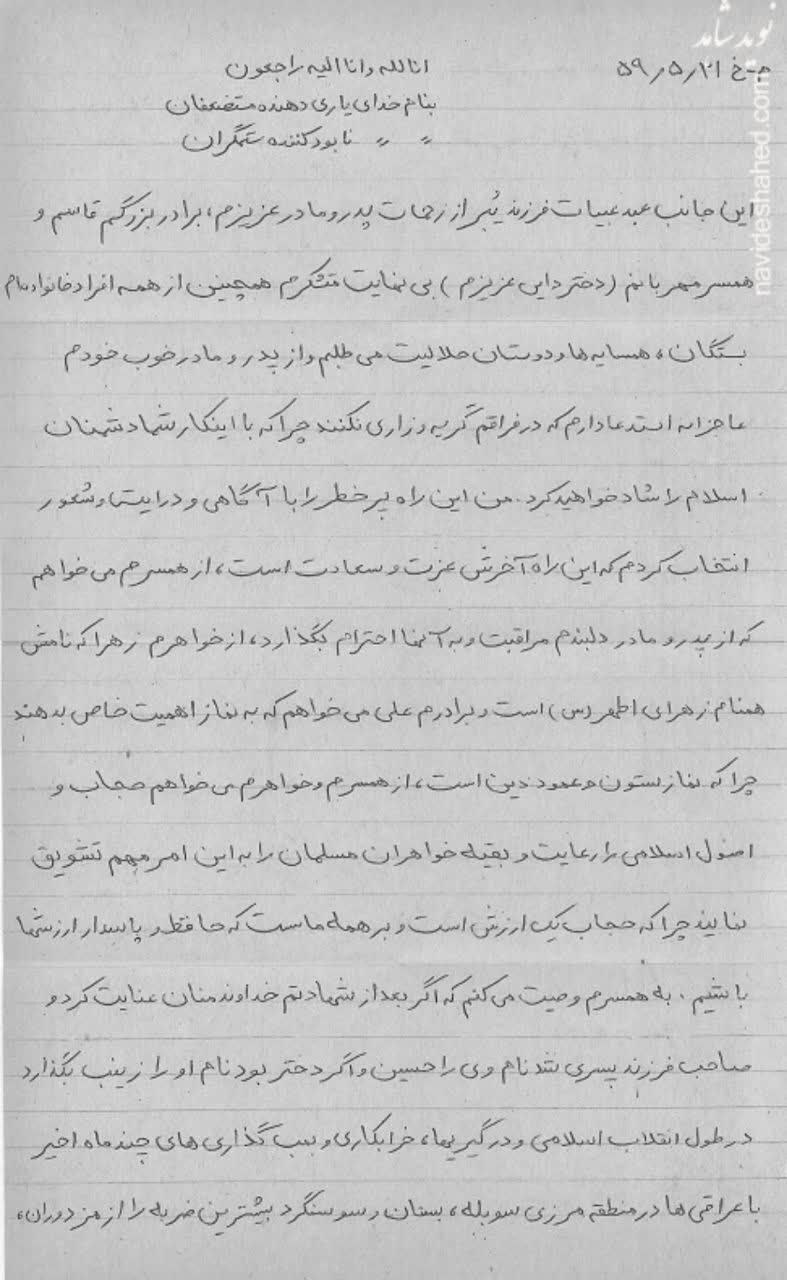 نوید شاهد
navideshahed.com
م-خ ۵۹٫۵٫۲۱
انا لله و انا الیه راجعون
بنام خدای یاری دهنده مستضعفان
〃 〃 نابود کننده ستمگران
این جانب عبد عبیات فرزند یُبر از زحمات پدر و مادر عزیزم، برادر بزرگم قاسم و
همسر مهربانم (دختر دایی عزیزم) بی نهایت متشکرم همچنین از همه افراد خانواده‌ام
بستگان، همسایه ها و دوستان حلالیت می طلبم و از پدر و مادر خوب خودم
عاجزانه استدعا دارم که در فراقم گریه و زاری نکنند چرا که با اینکار شما دشمنان
اسلام را شاد خواهید کرد. من این راه پر خطر را با آگاهی و درایت و شعور
انتخاب کردم که این راه آخرش عزت و سعادت است، از همسرم می خواهم
که از پدر و مادر دلبندم مراقبت و به آنها احترام بگذارد، از خواهرم زهرا که نامش
همنام زهرای اطهر (س) است و برادرم علی می خواهم که به نماز اهمیت خاص بدهند
چرا که نماز ستون و عمود دین است، از همسرم و خواهرم می خواهم حجاب و
اصول اسلامی را رعایت و بقیه خواهران مسلمان را به این امر مهم تشویق
نمایند چرا که حجاب یک ارزش است و بر همه ماست که حافظ و پاسدار ارزشها
باشیم. به همسرم وصیت می کنم که اگر بعد از شهادتم خداوند منان عنایت کرد و
صاحب فرزند پسری شد نام وی را حسین و اگر دختر بود نام او را زینب بگذارد
در طول انقلاب اسلامی و درگیریها، خرابکاری و بمب گذاری های چند ماه اخیر
با عراقی ها در منطقه مرزی سوبله، بستان و سوسنگرد بیشترین ضربه را از مزدوران،